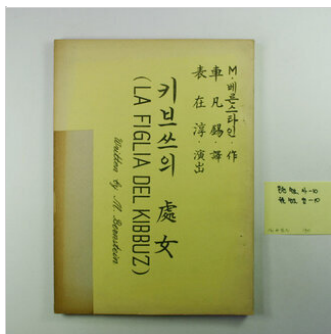 M·베른스타인·作
車凡錫·譯
表在淳·演出
키브쓰의 處女
(LA FIGLIA DEL KIBBUZ)
Written by M. Bernstein